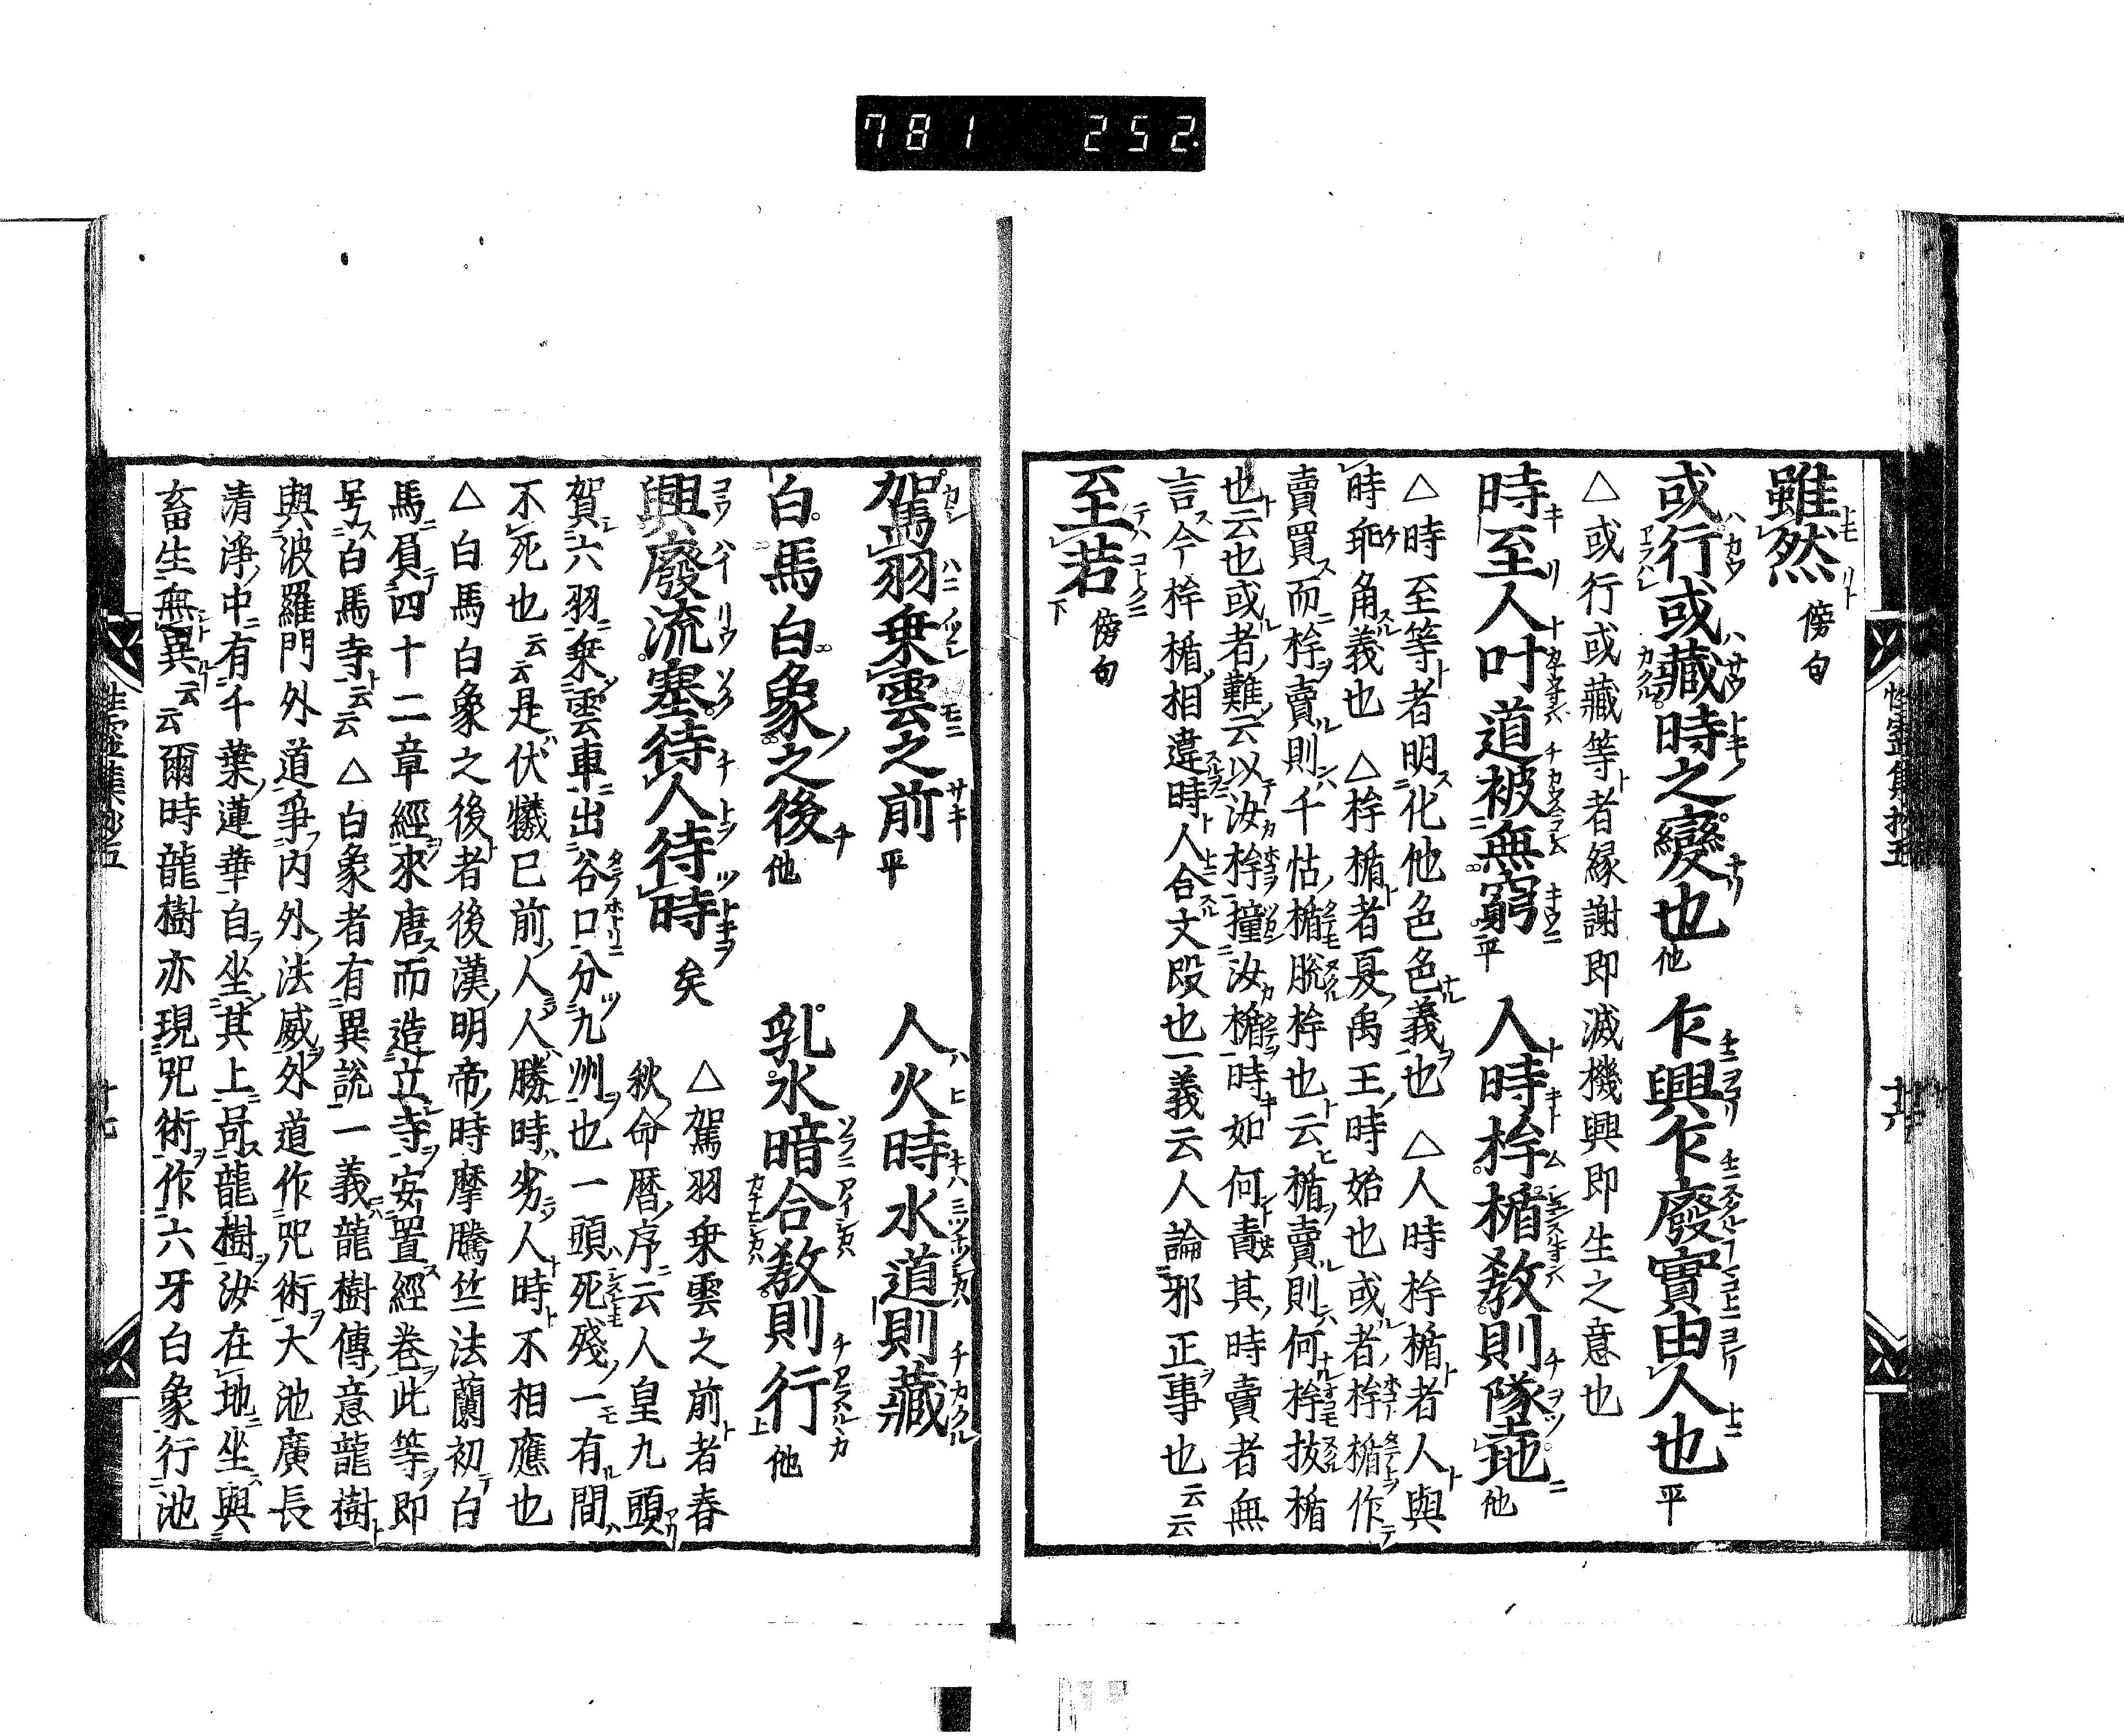 781 252
雖然 傍句
或行或藏時之變也 他 乍興乍廢實由人也 平
△或行或藏等者緣謝即滅機興即生之意也
時至人叶道被無窮 平 人時桙楯教則墜地 他
△時至等者明化他色色義也 △人時桙楯者人與
時乖角義也 △桙楯者夏禹王時始也或者桙楯作
賣買而桙賣則千怗楯脫桙也云楯賣則何桙拔楯
也云也或者難云以汝桙撞汝楯時如何責其時賣者無
言今桙楯相違時人合文段也一義云人論邪正事也云云
至若 傍句
駕羽乗雲之前 平 人火時水道則藏
白馬白象之後 他 乳水暗合教則行 他
興廢流塞待人待時 矣 △駕羽乗雲之前者春
秋命曆序云人皇九頭
賀六羽乗雲車出谷口分九州也一頭死殘一有間
不死也云云是伏犧已前人人勝時劣人時不相應也
△白馬白象之後者後漢明帝時摩騰竺法蘭初白
馬負四十二章經來唐而造立寺安置經卷此等即
号白馬寺云云 △白象者有異說一義龍樹傳意龍樹
與波羅門外道爭内外法威外道作咒術大池廣長
清淨中有千葉蓮華自坐其上咼龍樹汝在地坐與
畜生無異云云爾時龍樹亦現咒術作六牙白象行池